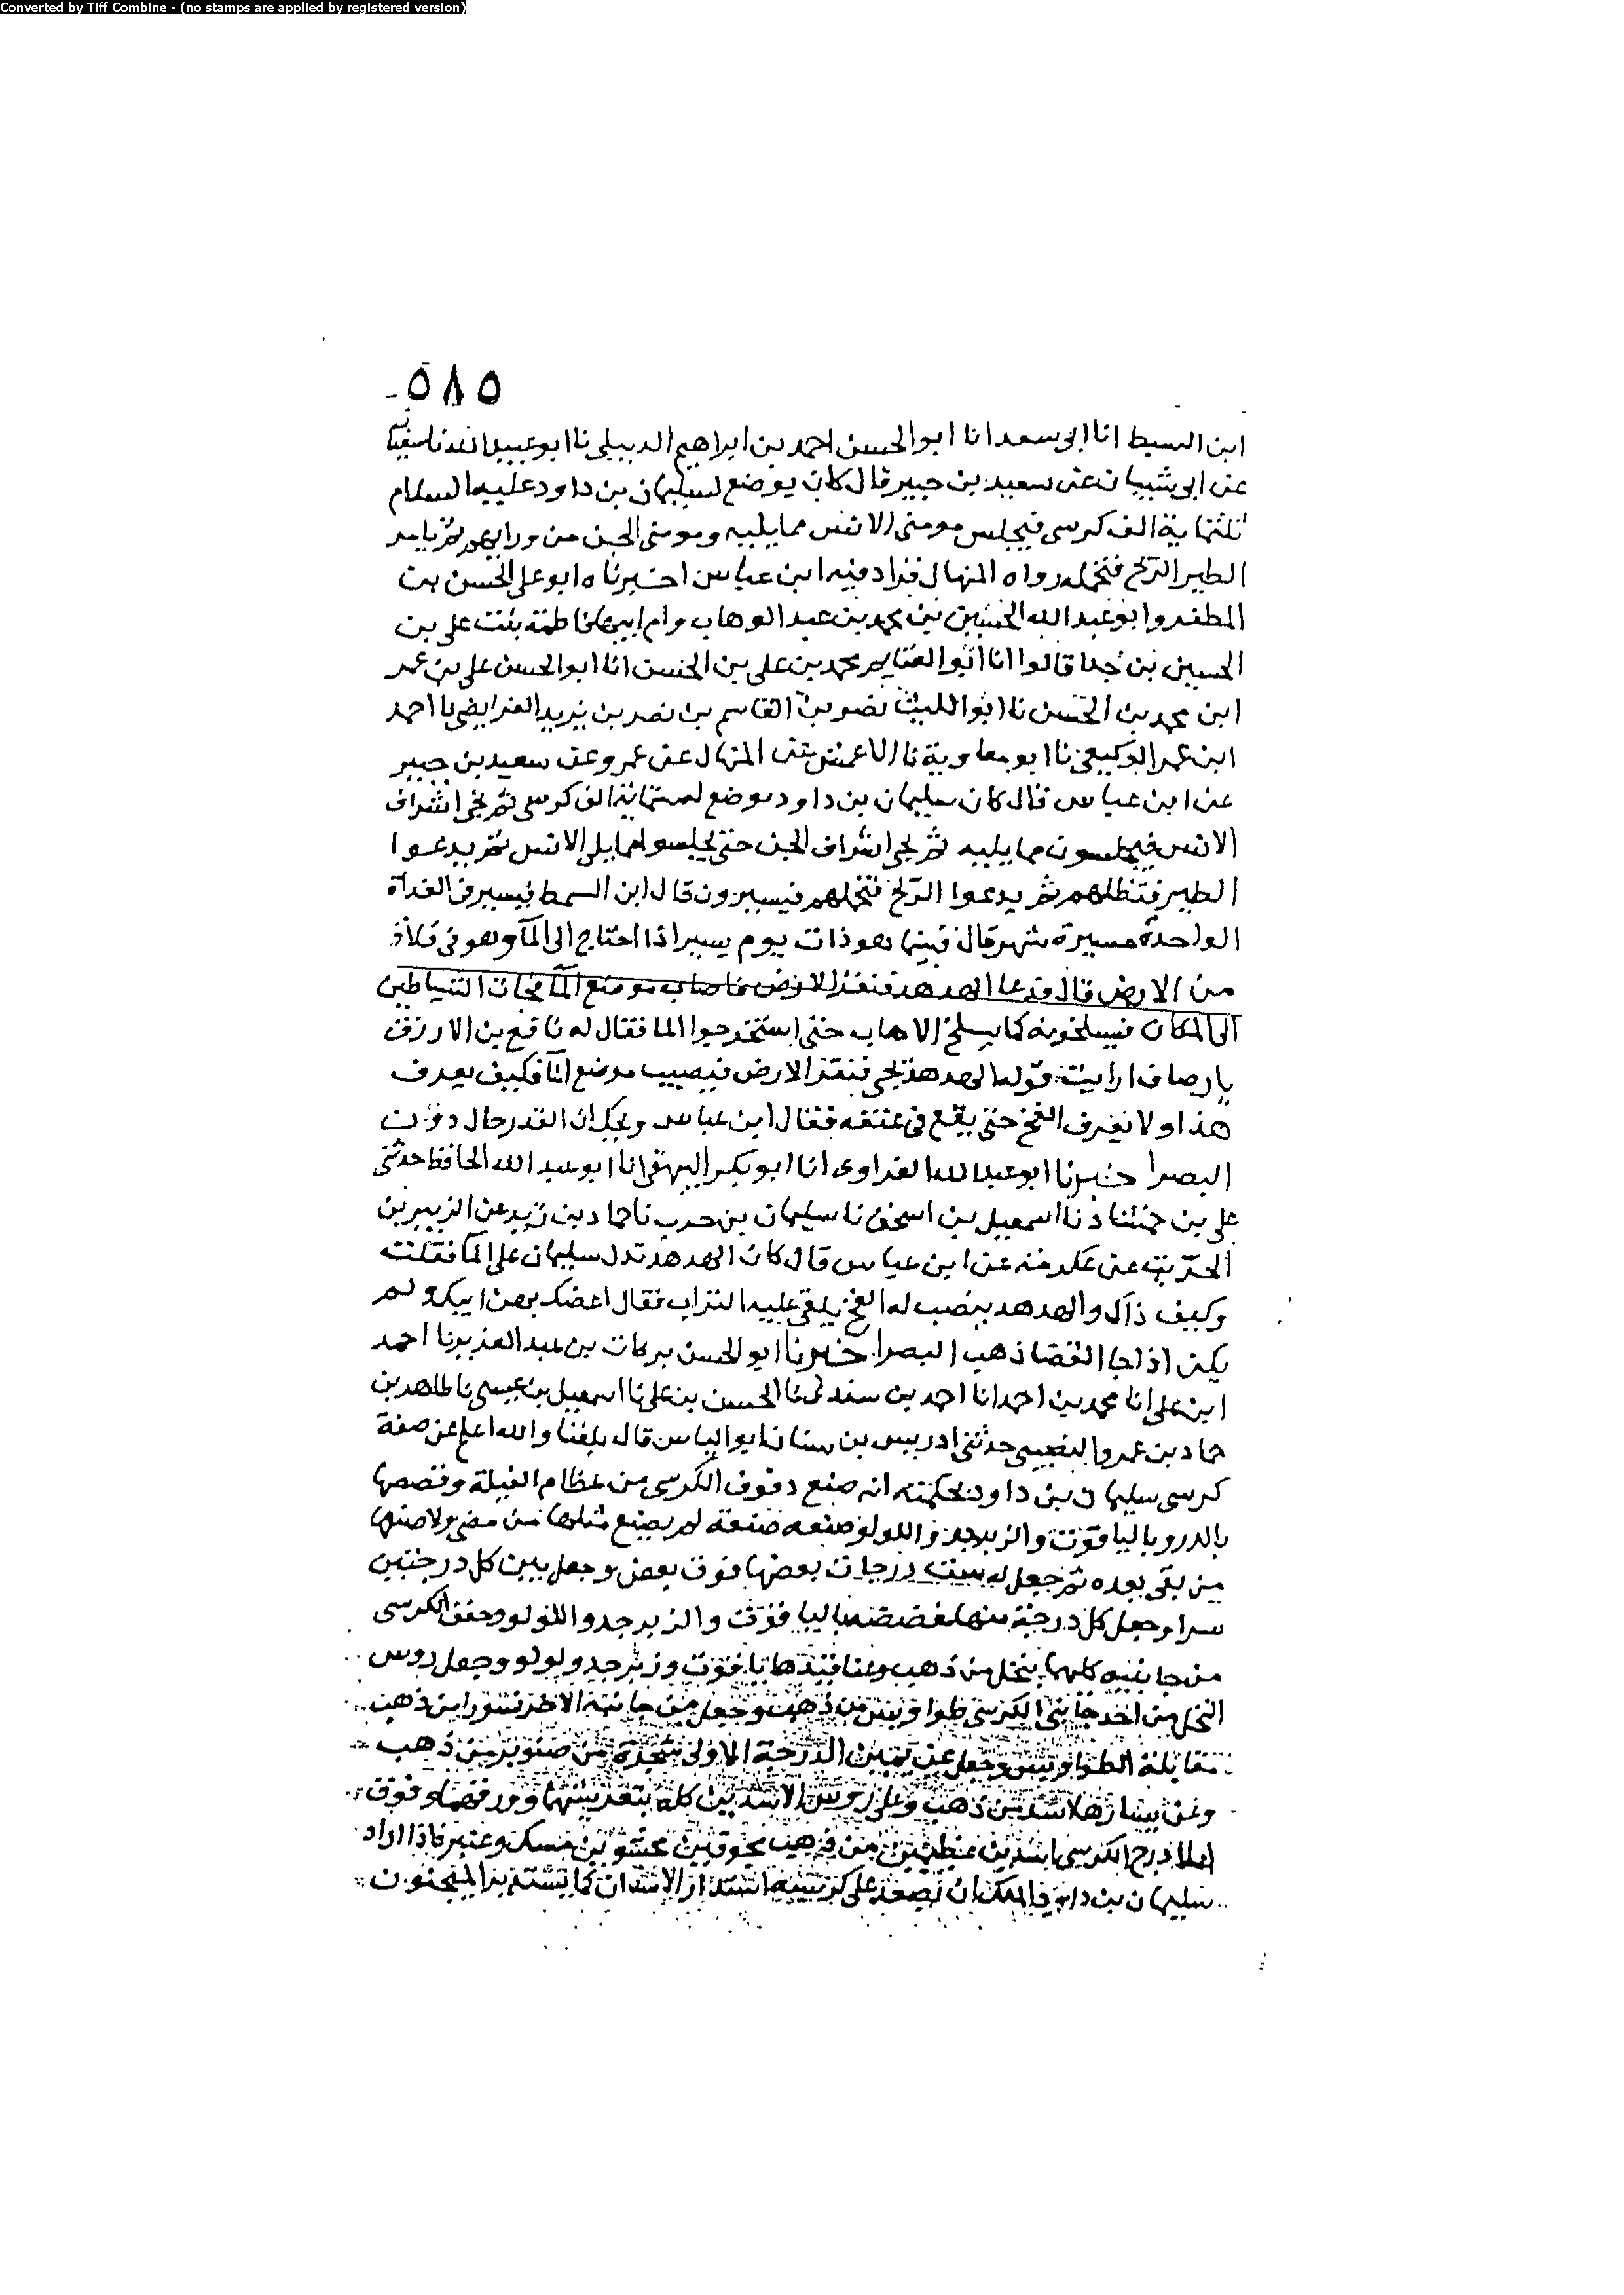 Converted by Tiff Combine - (no stamps are applied by registered version)
٥٨٥
ابن السبط انا ابى سعد انا ابو الحسن احمد بن ابراهيم الدبيلى نا ابو عبيد الله نا سفيان
عن ابى شيبان عن سعيد بن جبير قال كان يوضع لسليمان بن داود عليهما السلام
ثلثماية الف كرسى فيجلس مومنى الانس مما يليه ومومنى الجن من ورايهم ثم يامر
الطير الريح فتحمله رواه المنهال فزاد فيه ابن عباس اخبرناه ابو على الحسن بن
المظفر وابو عبد الله الحسين بن محمد بن عبد الوهاب وام ابيها فاطمة بنت على بن
الحسين بن جدا قالوا انا ابو الغنايم محمد بن على بن الحسن انا ابو الحسن على بن عمر
ابن محمد بن الحسن نا ابو الليث نصر بن القاسم بن نصر بن يزيد الفرايضى نا احمد
ابن عمر الوكيعى نا ابو معاوية نا الاعمش عن المنهال عن عمرو عن سعيد بن جبير
عن ابن عباس قال كان سليمان بن داود يوضع له ستماية الف كرسى ثم يجى اشراف
الانس فيجلسون مما يليه ثم يجى اشراف الجن حتى يجلسوا مما يلى الانس ثم يدعوا
الطير فتظلهم ثم يدعوا الريح فتحملهم فيسيرون قال ابن السمط فيسير فى الغداة
الواحدة مسيرة شهر قال فبينما هو ذات يوم يسير اذا احتاج الى المآ وهو فى فلاة
من الارض قال فدعا الهدهد فنقر الارض فاصاب موضع المآ فجات الشياطين
الى المكان فيسلخونه كما يسلخ الاهاب حتى استخرجوا الما فقال له نافع بن الارزق
يا رصاف ارايت قوله الهدهد يجى فنقر الارض فيصيب موضع المآ فكيف يعرف
هذا ولا يعرف الفخ حتى يقع فى عنقه فقال ابن عباس ويحك ان القدر حال دون
البصر اخبرنا ابو عبد الله الفراوى انا ابو بكر البيهقى انا ابو عبد الله الحافظ حدثنى
على بن حمشاد نا اسمعيل بن اسحق نا سليمان بن حرب نا حماد بن زيد عن الزبير بن
الخريت عن عكرمة عن ابن عباس قال كان الهدهد تدل سليمان على المآ فقلت
وكيف ذاك والهدهد ينصب له الفخ يلقى عليه التراب فقال اعضك بهن ابيك ولم
يكن اذا جا القضا ذهب البصر اخبرنا ابو الحسن بركات بن عبد العزيز نا احمد
ابن على انا محمد بن احمد انا احمد بن سندى نا الحسن بن على نا اسمعيل بن عيسى نا طاهر بن
حماد بن عمرو النصيبى حدثنى ادريس بن سنان ابو الياس قال بلغنا والله اعلم عن صفة
كرسى سليمان بن داود بحكمته انه صنع دفوف الكرسى من عظام الفيلة وفصصها
بالدر وبالياقوت والزبرجد واللولو صنعه صنعة لم يصنع مثلها من مضى ولا صنها
من بقى بعده ثم جعل له ست درجات بعضها فوق بعض وجعل بين كل درجتين
سرا وجعل كل درجة منها مفصصه باليا قوت والزبرجد واللولو وحفف الكرسى
من جانبيه كليهما بنخل من ذهب وعناقيدها ياقوت وزبرجد ولولو وجعل روس
النخل من احد جانبى الكرسى طواويس من ذهب وجعل من جانبه الاخر نسورا من ذهب
مقابلة الطواويس وجعل عن يمين الدرجة الاولى شجرة من صنوبر من ذهب
وعن يسارها اسدين ذهب وعلى روس الاسدين
اعلا درج الكرسى اسدين عظيمين من ذهب مجوفين محشوين مسك وعنبر فاذا اراد
سليمان بن داود الملك ان يصعد على كرسيه استدار الاسدان كما يستدير المنجنون